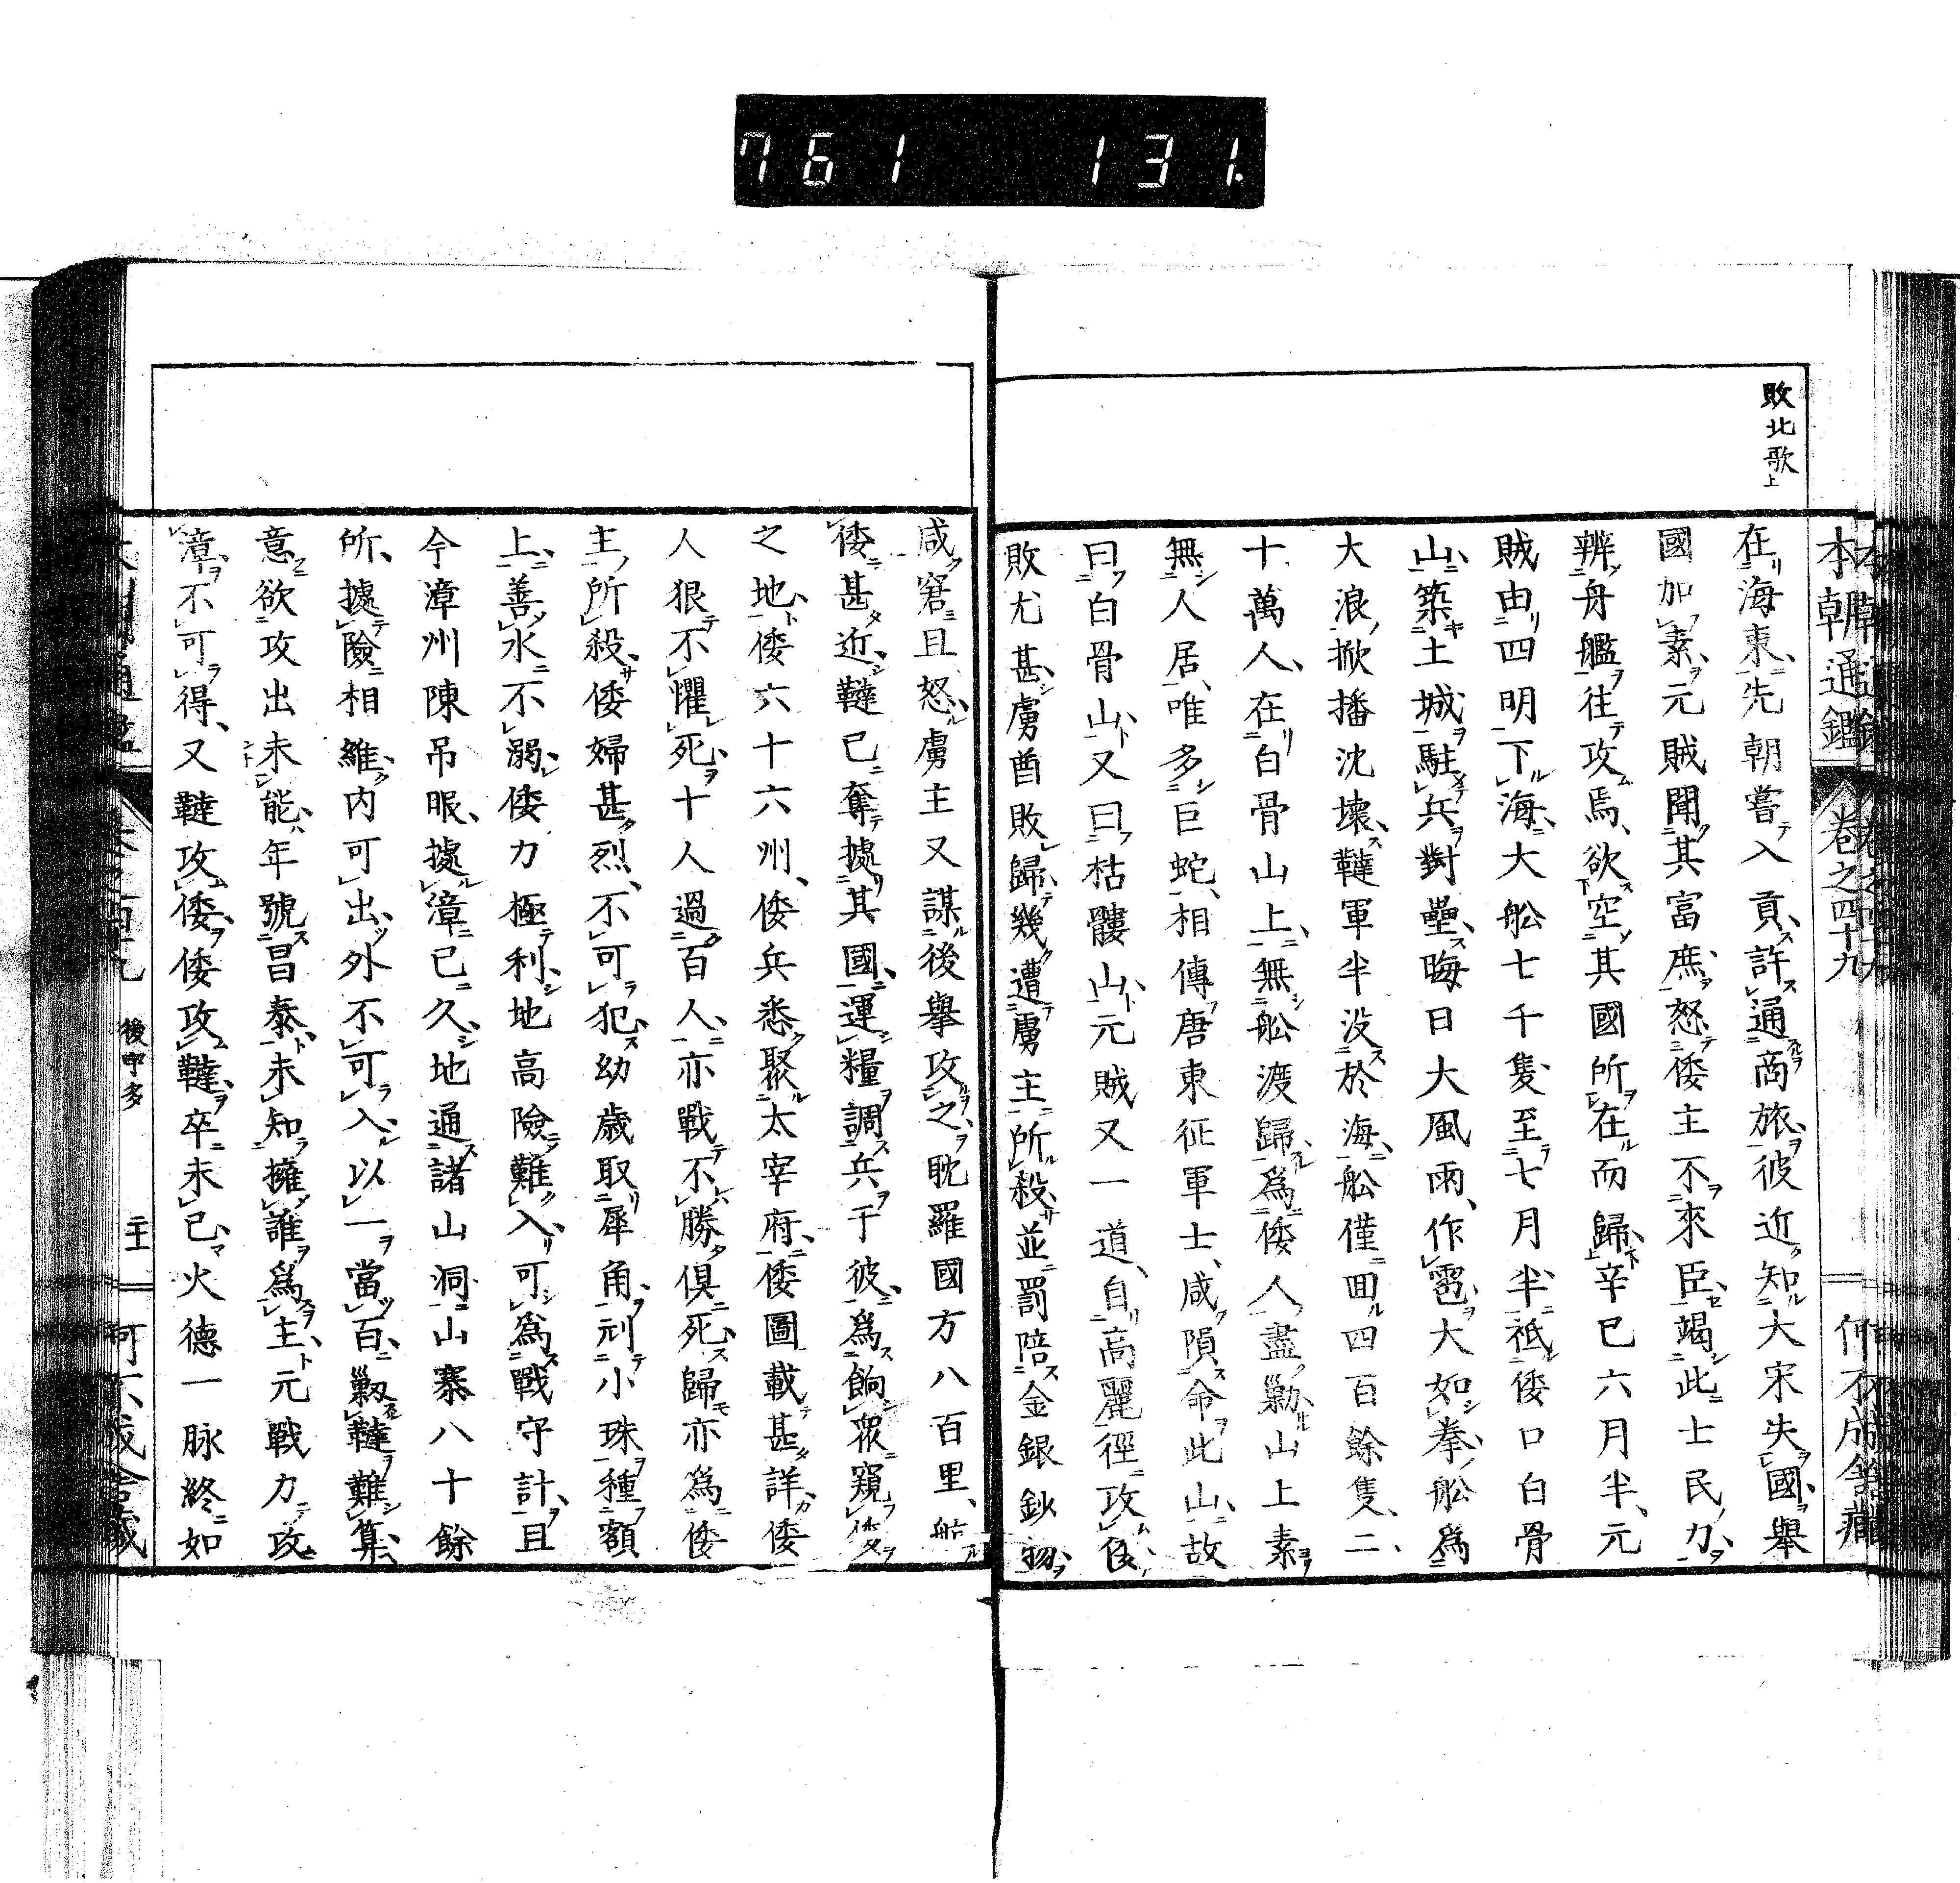 761 131.
敗北歌上
本朝通鑑 卷之四十九 竹不成舍藏
在海東先朝嘗入貢許通商旅彼近知大宋失國舉
國加素元賊聞其富庶怒倭主不來臣竭此士民力
辨舟艦往攻焉欲空其國所在而歸辛巳六月半元
賊由四明下海大舩七千隻至七月半祗倭口白骨
山築土城駐兵對壘晦日大風雨作雹大如拳舩為
大浪掀播沈壞韃軍半没於海舩僅回四百餘隻二
十萬人在白骨山上無舩渡歸為倭人盡勦山上素
無人居唯多巨蛇相傳唐東征軍士咸隕命此山故
曰白骨山又曰枯髏山元賊又一道自高麗徑攻倭
敗尤甚虜酋敗歸幾遭虜主所殺並罰陪金銀鈔物
咸窘且怒虜主又謀後擧攻之耽羅國方八百里航
倭甚近韃已奪據其國運糧調兵于彼為餉衆窺倭
之地倭六十六州倭兵悉聚太宰府倭圖載甚詳倭
人狠不懼死十人過百人亦戰不勝俱死歸亦為倭
主所殺倭婦甚烈不可犯幼歳取犀角刓小珠種額
上善水不溺倭刀極利地高險難入可為戰守計且
今漳州陳吊眼據漳已久地通諸山洞山寨八十餘
所據險相維内可出外不可入以一當百勦韃難算
意欲攻出未能年號昌泰未知擁誰為主元戰力攻
漳不可得又韃攻倭倭攻韃卒未已火德一脉終如
後宇多